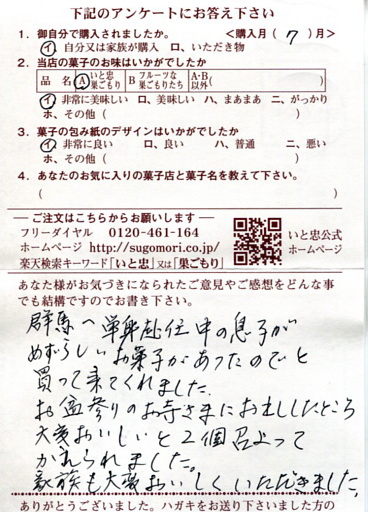 下記のアンケートにお答え下さい
1. 御自分で購入されましたか。 <購入月(7)月>
イ、自分又は家族が購入 ロ、いただき物
2. 当店の菓子のお味はいかがでしたか
品名 A いと忠巣ごもり B フルーツな巣ごもりたち A・B以外( )
イ、非常に美味しい ロ、美味しい ハ、まあまあ ニ、がっかり
ホ、その他( )
3. 菓子の包み紙のデザインはいかがでしたか
イ、非常に良い ロ、良い ハ、普通 ニ、悪い
ホ、その他( )
4. あなたのお気に入りの菓子店と菓子名を教えて下さい。
( )
― ご注文はこちらからお願いします ―
フリーダイヤル 0120-461-164
ホームページ http://sugomori.co.jp/
楽天検索キーワード「いと忠」又は「巣ごもり」
いと忠公式
ホームページ
あなた様がお気づきになられたご意見やご感想をどんな事
でも結構ですのでお書き下さい。
群馬へ単身赴任中の息子が
めずらしいお菓子があったのでと
買って来てくれました。
お盆参りのお寺さまにお出ししたところ
大変おいしいと2個召上って
かえられました。
家族も大変おいしくいただきました。
ありがとうございました。ハガキをお送り下さいました方の